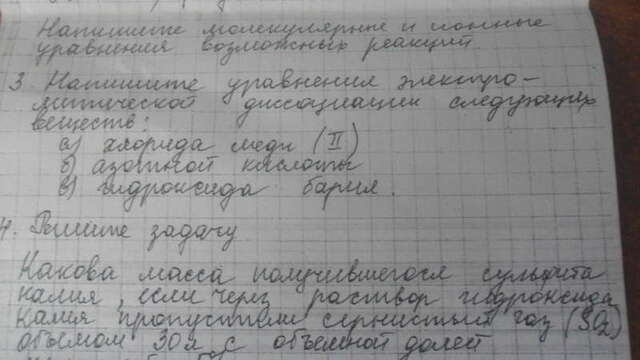 Напишите молекулярные и ионные
уравнения возможных реакций
3. Напишите уравнения электро-
литической диссоциации следующих
веществ:
а) хлорида меди (II)
б) азотной кислоты
в) гидроксида бария.
4. Решите задачу
Какова масса получившегося сульфита
калия, если через раствор гидроксида
калия пропустили сернистый газ (SO2)
объёмом 30л с объёмной долей